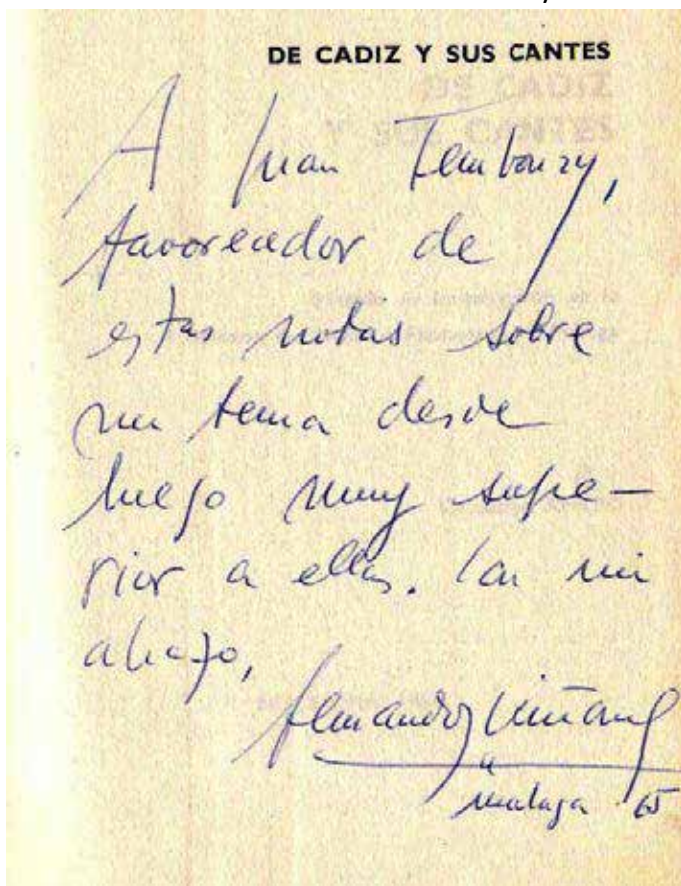 DE CADIZ Y SUS CANTES
DE CADIZ
Y SUS CANTES
A Juan Temboury,
favorecedor de
estas notas sobre
un tema desde
luego muy supe-
rior a ellas. Con mi
abrazo,
Fernando Quiñones
Malaga 65